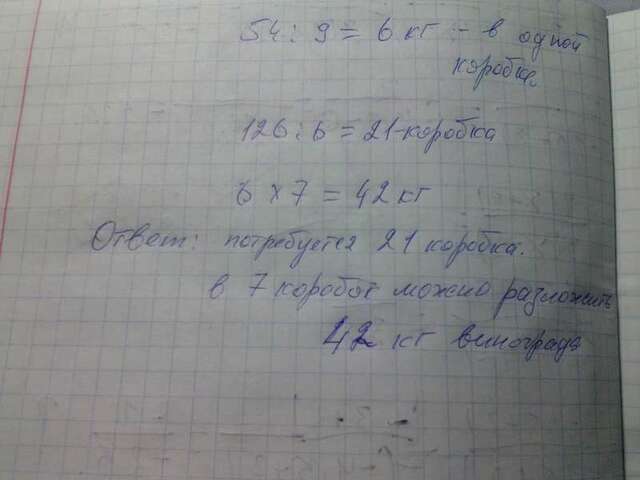 54 : 9 = 6 кг - в одной
коробке
126 : 6 = 21 - коробка
6 × 7 = 42 кг
Ответ: потребуется 21 коробка.
в 7 коробок можно разложить
42 кг винограда